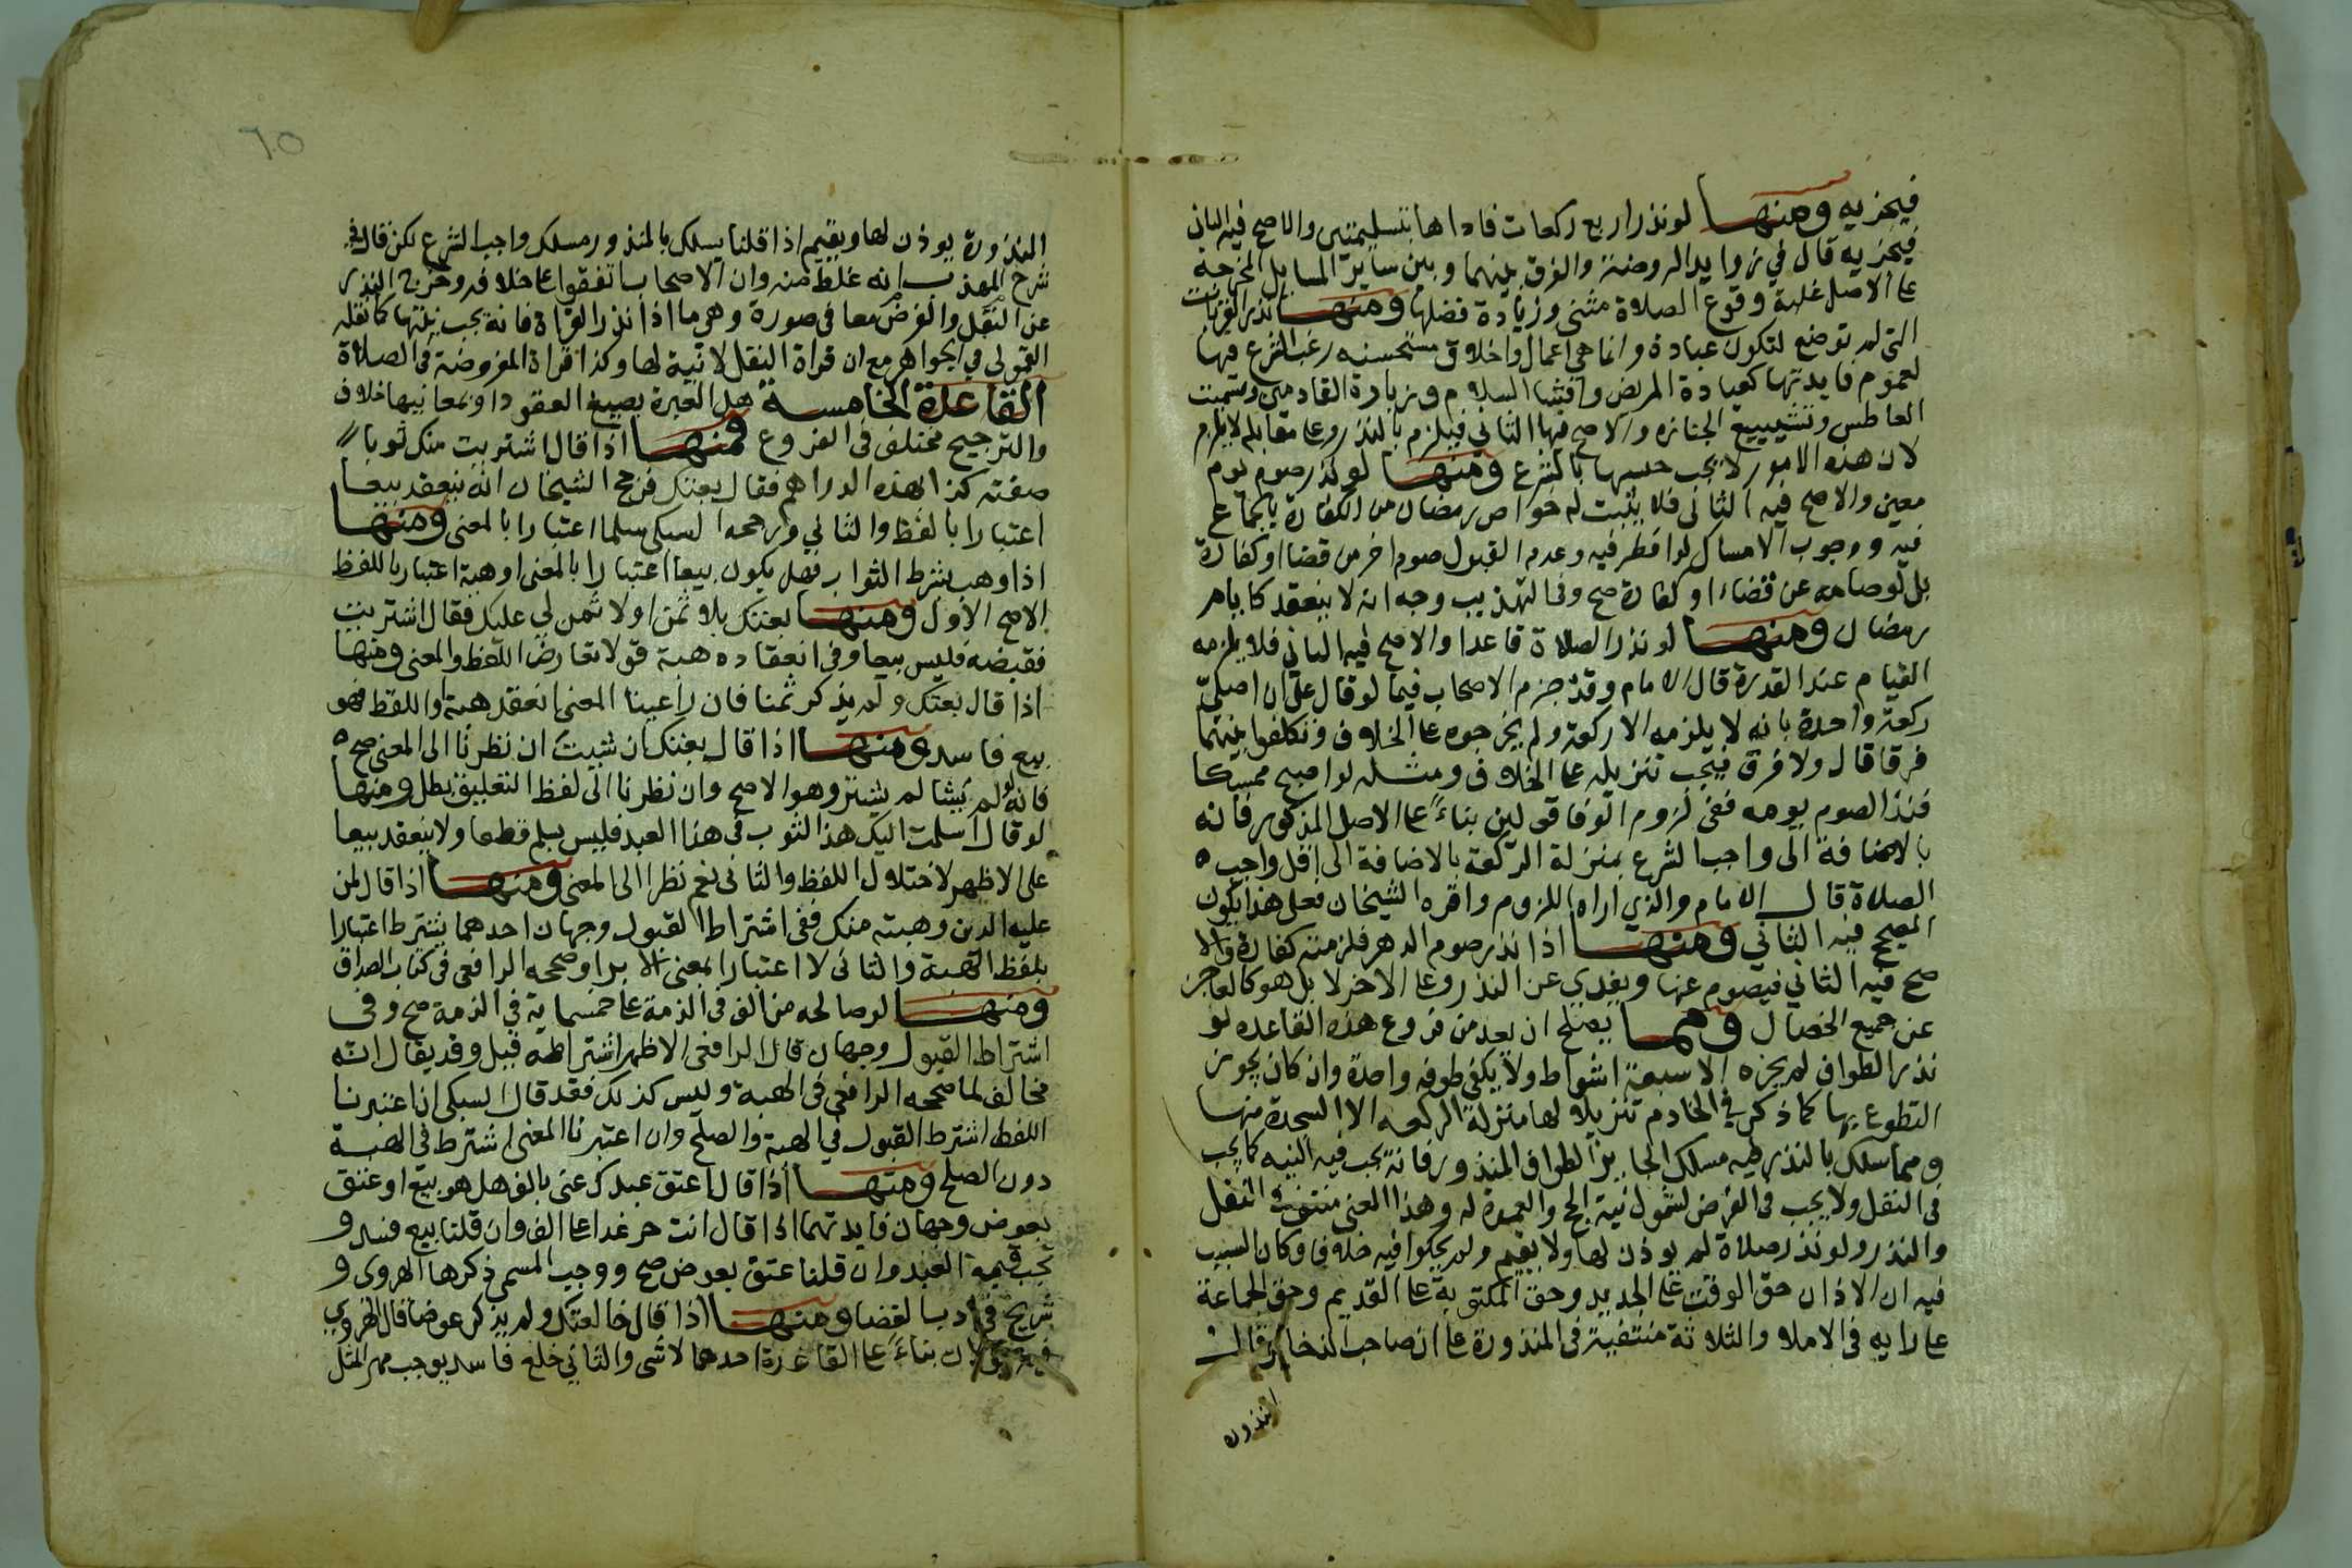 فيجزيه ومنها لو نذر اربع ركعات فاداها بتسليمتين والاصح فيه الثاني
فيجزيه قال في زوايد الروضة والفرق بينهما وبين ساير المسايل المخرجة
على الاصل غلبة وقوع الصلاة مثنى وزيادة فضلها ومنها نذر القربات
التي لم توضع لتكون عبادة وانما هي اعمال واخلاق مستحسنه رغب الشرع فيها
لعموم فايدتها كعيادة المريض وافشا السلام وزيارة القادمين وتشميت
العاطس وتشييع الجنازه والاصح فيها الثاني فيلزم بالنذر وعلى مقابله لا يلزم
لان هذه الامور لا يجب جنسها بالشرع ومنها لو نذر صوم يوم
معين والاصح فيه الثاني فلا يثبت له خواص رمضان من الكفارة بالجماع
فيه ووجوب الامساك لو افطر فيه وعدم القبول صوم اخر من قضا او كفارة
بل لو صامه عن قضاء او كفارة صح وفي التهذيب وجه انه لا ينعقد كايام
رمضان ومنها لو نذر الصلاة قاعدا والاصح فيه الثاني فلا يلزمه
القيام عند القدرة قال الامام وقد جزم الاصحاب فيما لو قال علي ان اصلي
ركعة واحدة بانه لا يلزمه الا ركعة ولم يخرجوه على الخلاف وتكلفوا بينهما
فرقا قال ولا فرق فيجب تنزيله على الخلاف ومثله لو اصبح ممسكا
فنذر الصوم يومه ففي لزوم الوفا قولين بناء على الاصل المذكور فانه
بالاضافة الى واجب الشرع بمنزلة الركعة بالاضافة الى اقل واجب
الصلاة قال الامام والذي اراه اللزوم واقره الشيخان فعلى هذا يكون
المصحح فيه الثاني ومنها اذا نذر صوم الدهر فلزمته كفارة والا
صح فيه الثاني فيصوم عنها ويفدي عن النذر وعلى الاخر لا بل هو كالعاجز
عن جميع الخصال ومما يصلح ان يعد من فروع هذه القاعده لو
نذر الطواف لم يجزه الا سبعة اشواط ولا يكفي طوفه واحدة وان كان يجوز
التطوع بها كما ذكر في الخادم تنزيلا لها منزلة الركعه الا السجدة منها
ومما سلك بالنذر فيه مسلك الجايز الطواف المنذور فانه يجب فيه النيه كما يجب
في النفل ولا يجب في الفرض لشمول نية الحج والعمرة له وهذا المعنى منتف في النفل
والنذر ولو نذر صلاة لم يوذن لها ولا يقيم ولم يحكوا فيه خلافا وكان السبب
فيه ان الاذان حق الوقت على الجديد وحق المكتوبة على القديم وحق الجماعة
على رايه في الاملا والثلاثة منتفية في المنذورة على ان صاحب الذخاير قال
المنذورة
٦٥
المنذورة يوذن لها ويقيم اذا قلنا يسلك بالمنذور مسلك واجب الشرع لكن قال في
شرح المهذب انه غلط منه وان الاصحاب اتفقوا على خلافه وخرج النذر
عن النفل والفرض معا في صورة وهي ما اذا نذر القراة فانه يجب نيتها كما نقله
القمولي في الجواهر مع ان قراة النفل لا نية لها وكذا قراة المفروضة في الصلاة
القاعدة الخامسة هل العبرة بصيغ العقود او بمعانيها خلاف
والترجيح مختلف في الفروع فمنها اذا قال اشتريت منك ثوبا
صفته كذا بهذه الدراهم فقال بعتك فرجح الشيخان انه ينعقد بيعا
اعتبارا باللفظ والثاني ورجحه السبكي سلما اعتبارا بالمعنى ومنها
اذا وهب بشرط الثواب فهل يكون بيعا اعتبارا بالمعنى او هبة اعتبارا باللفظ
الاصح الاول ومنها بعتك بلا ثمن او لا ثمن لي عليك فقال اشتريت
فقبضه فليس بيعا وفي انعقاده هبة قولا تعارض اللفظ والمعنى ومنها
اذا قال بعتك ولم يذكر ثمنا فان راعينا المعنى انعقد هبة او اللفظ فهو
بيع فاسد ومنها اذا قال بعتك ان شيت ان نظرنا الى المعنى صح
فانه لو لم يشا لم يشتر وهو الاصح وان نظرنا الى لفظ التعليق بطل ومنها
لو قال اسلمت اليك هذا الثوب في هذا العبد فليس بسلم قطعا ولا ينعقد بيعا
على الاظهر لاختلال اللفظ والثاني نعم نظرا الى المعنى ومنها اذا قال لمن
عليه الدين وهبته منك ففي اشتراط القبول وجهان احدهما يشترط اعتبارا
بلفظ الهبة والثاني لا اعتبارا بمعنى الابرا وصححه الرافعي في كتاب الصداق
ومنها لو صالحه من الف في الذمة على خمسماية في الذمة صح وفي
اشتراط القبول وجهان قال الرافعي الاظهر اشتراطه قيل وقد يقال انه
مخالف لما صححه الرافعي في الهبة وليس كذلك فقد قال السبكي ان اعتبرنا
اللفظ اشترط القبول في الهبة والصلح وان اعتبرنا المعنى اشترط في الهبة
دون الصلح ومنها اذا قال اعتق عبدك عني بالف هل هو بيع او عتق
بعوض وجهان فايدتهما اذا قال انت حر غدا على الف وان قلنا بيع فسد و
تجب قيمة العبد وان قلنا عتق بعوض صح ووجب المسمى ذكرها الهروي و
شريح في ادب القضا ومنها اذا قال خالعتك ولم يذكر عوضا قال الهروي
فيه قولان بناء على القاعدة احدهما لا شي والثاني خلع فاسد يوجب مهر المثل